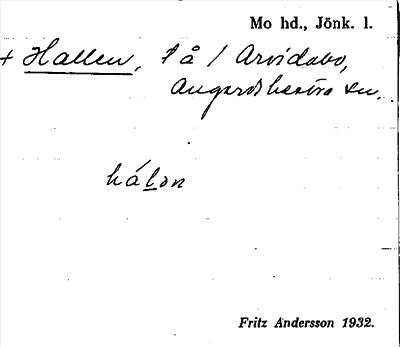 Mo hd., Jönk. l.
+ Hallen, t å / Arvidabo,
Angerdshestra sn.
hálon
Fritz Andersson 1932.